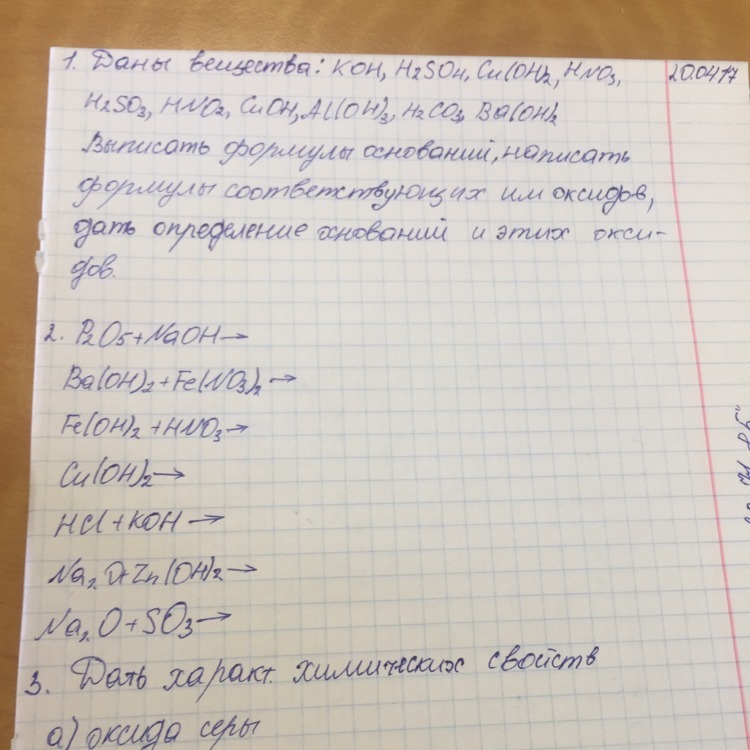 1. Даны вещества: KOH, H2SO4, Cu(OH)2, HNO3, 20.04.17
H2SO3, HNO2, CuOH, Al(OH)3, H2CO3, Ba(OH)2
Выписать формулы оснований, написать
формулы соответствующих им оксидов,
дать определение оснований и этих окси-
дов.
2. P2O5 + NaOH →
Ba(OH)2 + Fe(NO3)2 →
Fe(OH)2 + HNO3 →
Cu(OH)2 →
HCl + KOH →
Na2O + Zn(OH)2 →
Na2O + SO3 →
3. Дать характ. химических свойств
а) оксида серы